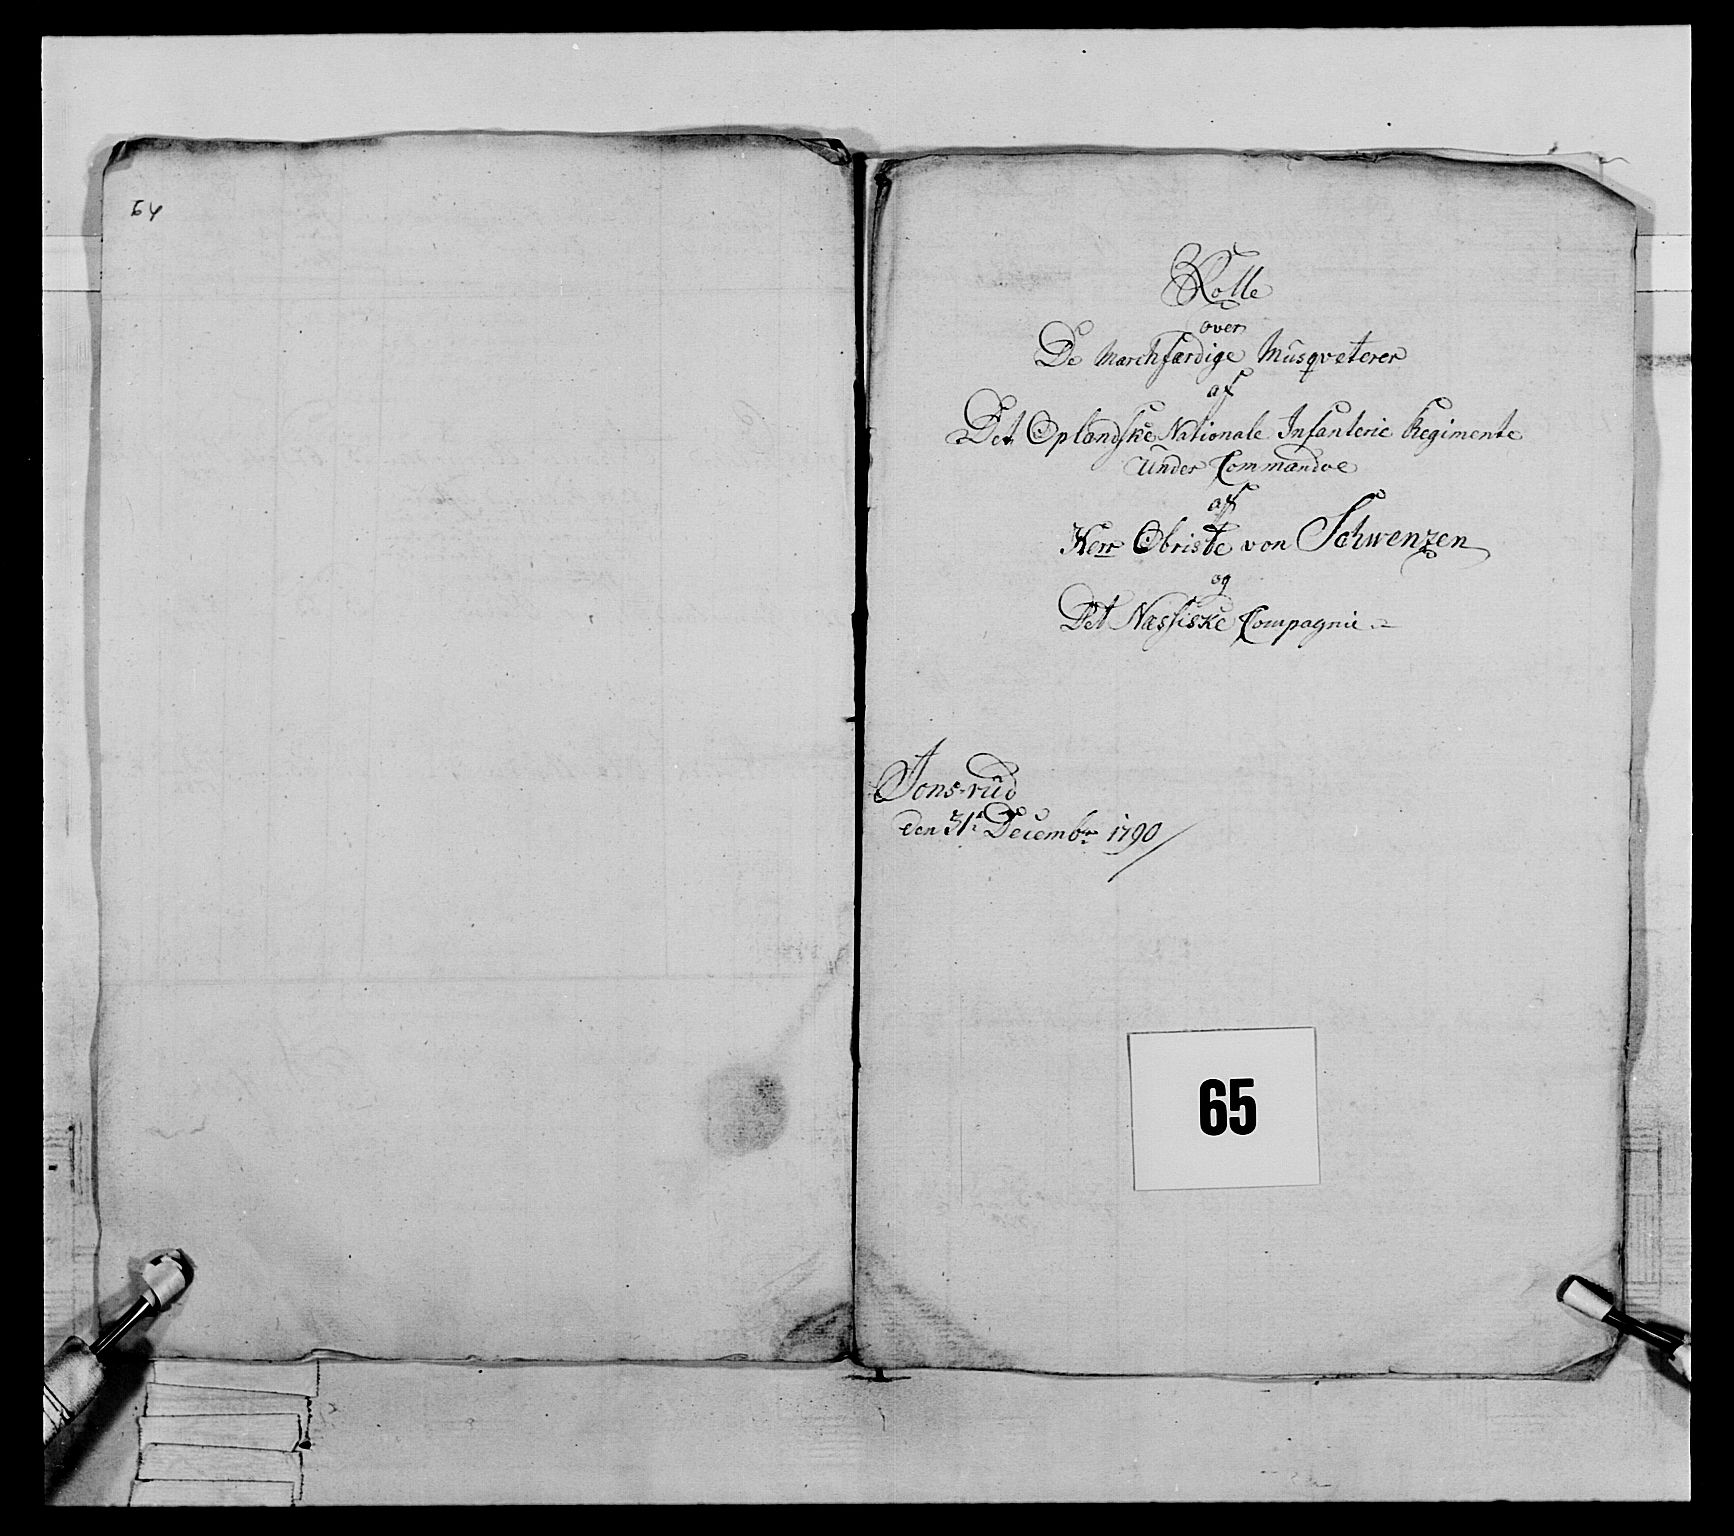 64
Rolle
over
De Marchfærdige Musqveterer
af
Det Oplandske Nationale Infanterie Regimente
Under Commandoe
af
Herr Obriste von Schwenzen
og
Det Næssiske Compagnie
Jonsrud
den 31t Decembr 1790
65